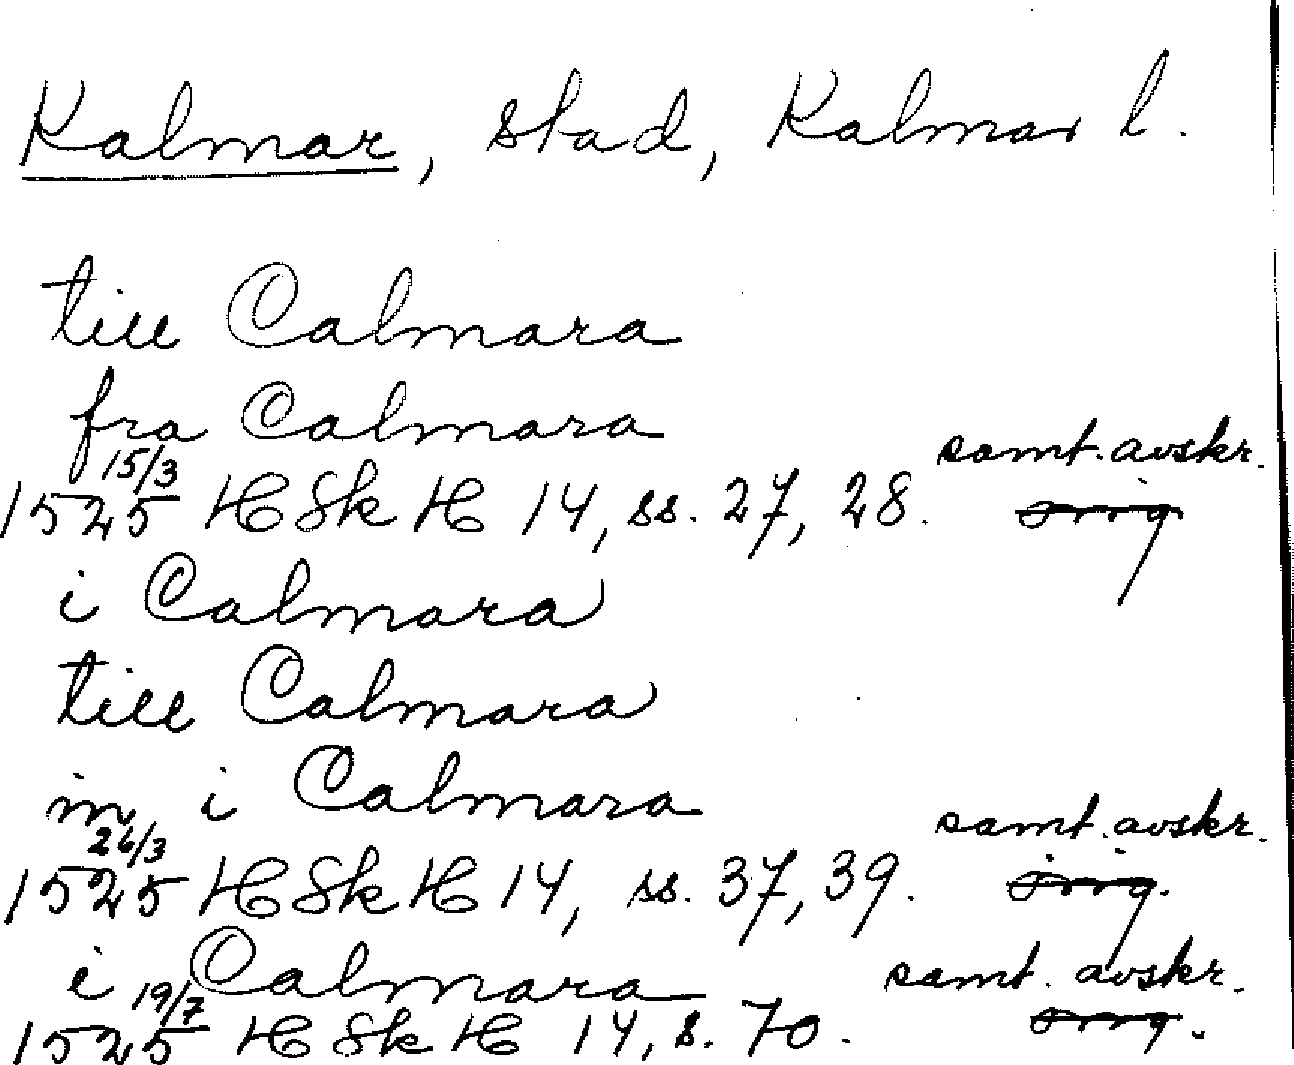 Kalmar, stad, Kalmar l.
till Calmara
fra Calmara
samt. avskr.
15/3
1525 HSkH 14, ss. 27, 28. orig
i Calmara
till Calmara
in i Calmara
samt. avskr.
26/3
1525 HSkH 14, ss. 37, 39. orig.
i Calmara samt. avskr.
19/7
1525 HSkH 14, s. 70. orig.